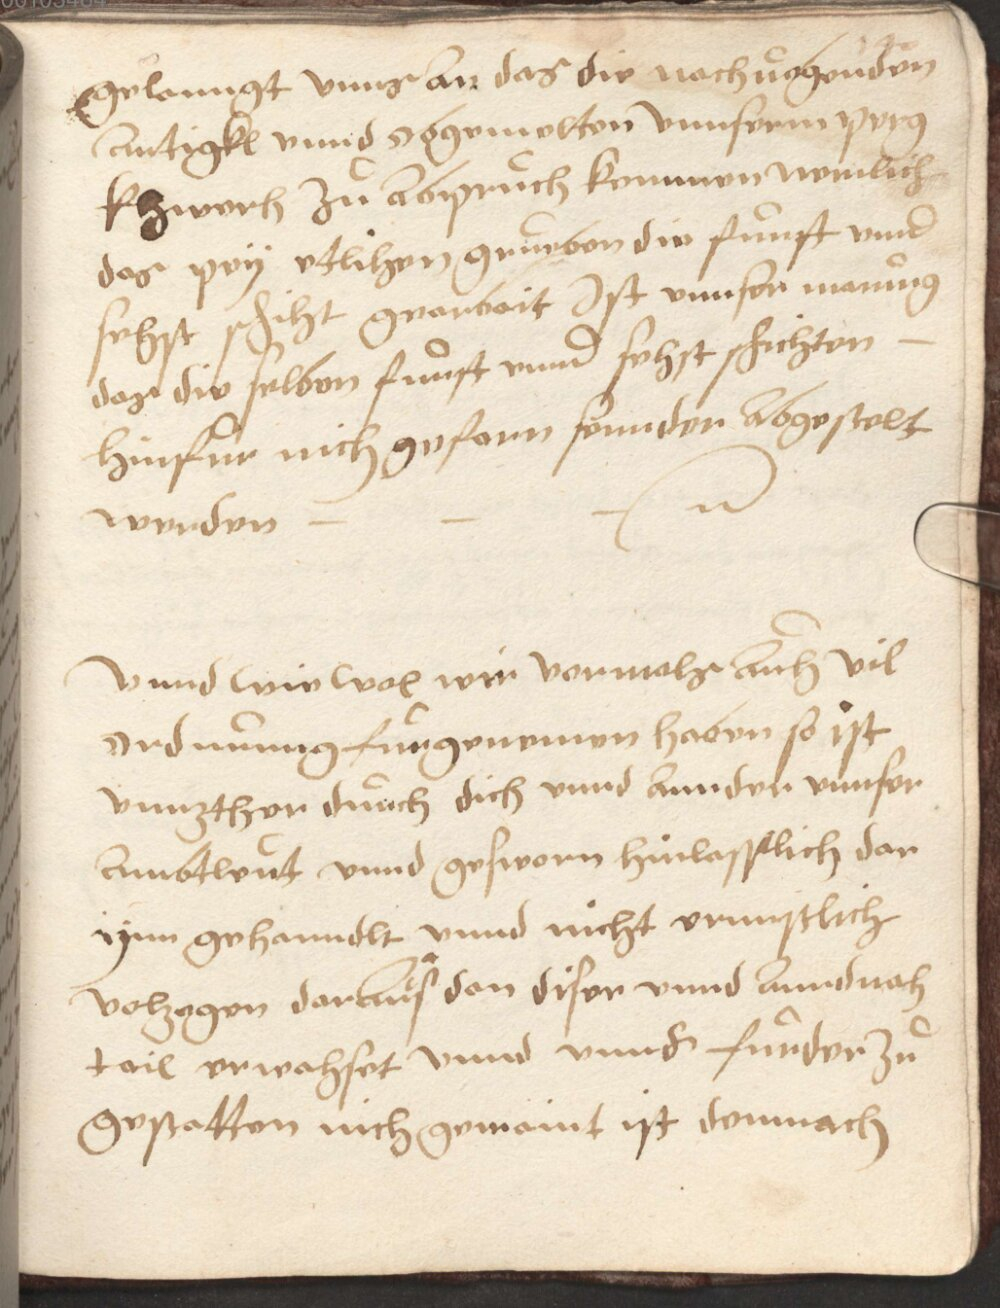 00103484
gelanngt vnns an das die nachuolgenden
Artigkl vnnd obgemelten vnnserm perg
khwerh zu Abspruch kommen nemlich
das pey etlihen grueben die funft vnnd
sehst schiht gearbait Ist vnnser manung
das die selben funft vnnd sehst schichten —
hinfur nich gefarn sonnder abgestelt
werden — — —
Vnnd wie wol wir vormals auch vil
ordnunng furgenomen haben so ist
vnnzther durch dich vnnd annder vnnser
ambtleut vnnd gesworn hinlasslich dar
ynn gehanndlt vnnd nicht ernnstlich
volzogen daraus dan diser vnnd annd nach
tail erwahset vnnd vnns furder zu
gestatten nich gemaint ist demnach